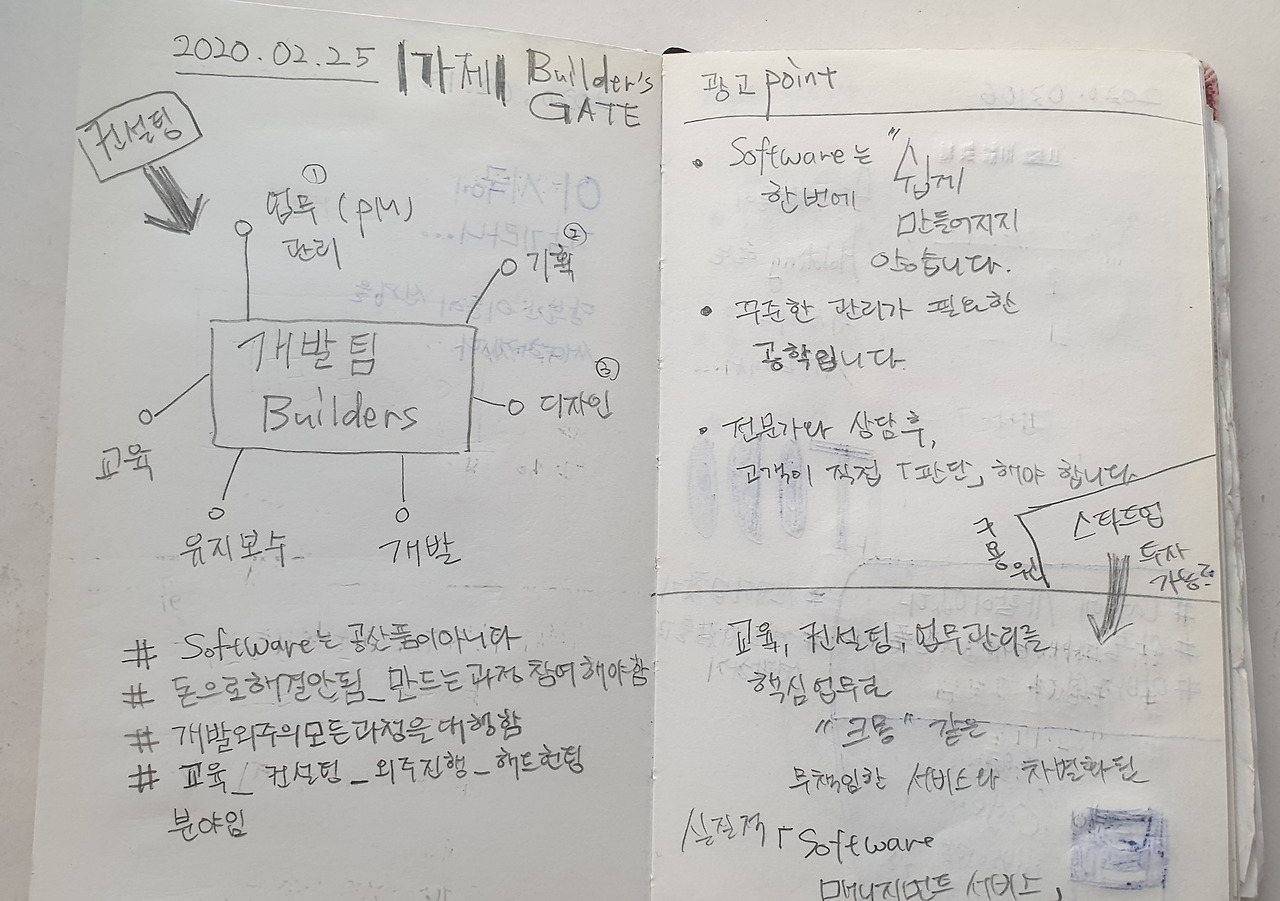 2020.02.25 |가제| Builder's
GATE
컨설팅
①
업무 (PM)
관리
②
기획
개발팀
Builders
③
디자인
교육
유지보수
개발
# Software는 공산품이아니다
# 돈으로해결안됨_만드는과정 참여해야함
# 개발외주의모든과정을대행함
# 교육_컨설팅_외주진행_헤드헌팅
분야임
광고 point
• Software는 "쉽게
한번에
만들어지지
않습니다.
• 꾸준한 관리가 필요한
공학입니다.
• 전문가와 상담후,
고객이 직접 「판단」해야 합니다
스타트업
투자
가능?
교육, 컨설팅, 업무관리를
핵심업무로
"크몽" 같은
무책임한 서비스와 차별화된
실질적 「Software
매니지먼트 서비스」